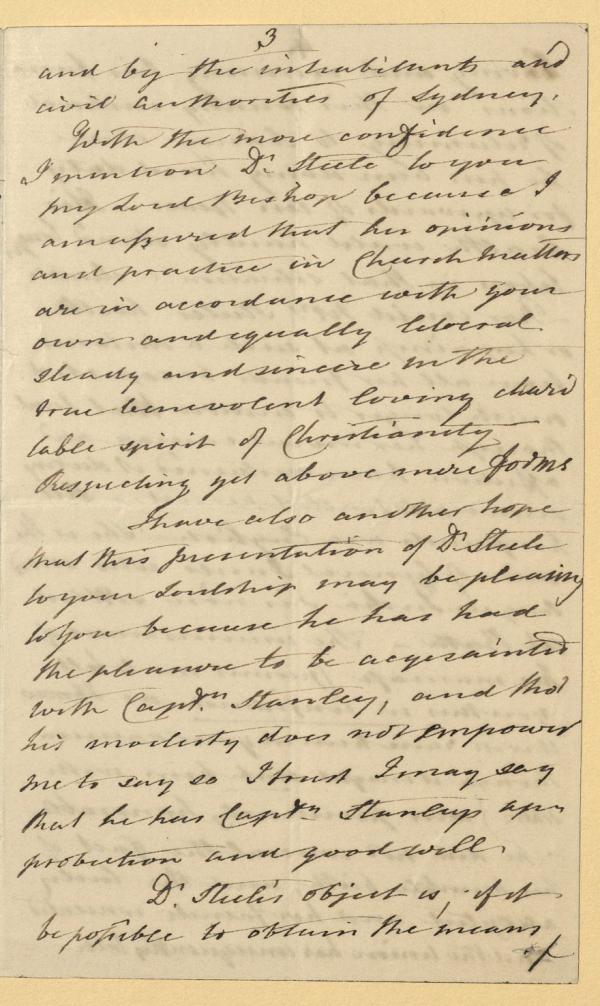 3
and by the inhabitants and
civil authorities of Sydney.
With the more confidence
I mention Dr. Steele to you
My Lord Bishop because I
am assured that his opinions
and practice in Church Matters
are in accordance with your
own and equally liberal
steady and sincere in the
true benevolent loving chari
table spirit of Christianity
Respecting yet above mere forms
I have also another hope
that this presentation of Dr. Steele
to your Lordship may be pleasing
to you because he has had
the pleasure to be acquainted
with Captn. Stanley, and tho'
his modesty does not empower
me to say so I trust I may say
that he has Captn Stanleys ap-
probation and good will.
Dr. Steele's object is, if it
be possible to obtain the means
of